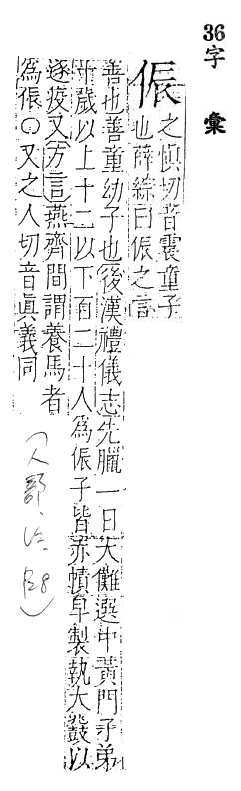 36
字彙
侲 之慎切音震童子
也薛綜曰侲之言
善也善童幼子也後漢禮儀志先臘一日大儺選中黃門子弟
十歲以上十二以下百二十人為侲子皆赤幘皁製執大鼗以
逐疫又方言燕齊間謂養馬者
為侲○又之人切音眞義同
(人部、